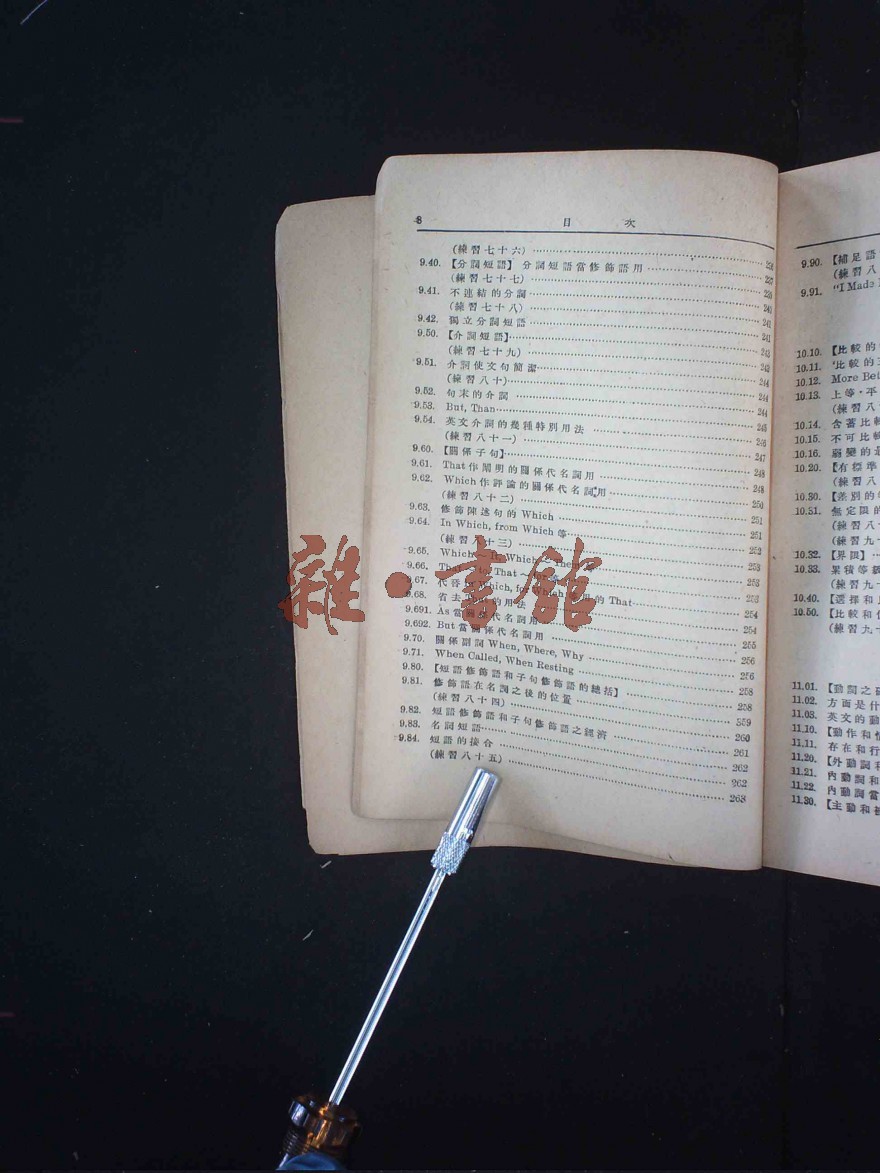 8 目次
(練習七十六) 236
9.40. 【分詞短語】 分詞短語當修飾語用 237
(練習七十七) 239
9.41. 不連結的分詞 240
(練習七十八) 241
9.42. 獨立分詞短語 241
9.50. 【介詞短語】 243
(練習七十九) 243
9.51. 介詞使文句簡潔 244
(練習八十) 244
9.52. 句末的介詞 244
9.53. But, Than 245
9.54. 英文介詞的幾種特別用法 246
(練習八十一) 247
9.60. 【關係子句】 248
9.61. That 作闡明的關係代名詞用 248
9.62. Which 作評論的關係代名詞用 250
(練習八十二) 251
9.63. 修飾陳述句的 Which 251
9.64. In Which, from Which 等 252
(練習八十三) 253
9.65. Which 253
9.66. That 253
9.67. 代替 的 That 254
9.68. 省去 的用法 254
9.691. As 當關係代名詞用 255
9.692. But 當關係代名詞用 256
9.70. 關係副詞 When, Where, Why 256
9.71. When Called, When Resting 258
9.80. 【短語修飾語和子句修飾語的總括】 258
9.81. 修飾語在名詞之後的位置 259
(練習八十四) 260
9.82. 短語修飾語和子句修飾語之經濟 261
9.83. 名詞短語 262
9.84. 短語的接合 262
(練習八十五) 268
9.90. 【補足語
(練習八
9.91. "I Made
10.10. 【比較的
10.11. 比較的
10.12. More Bei
10.13. 上等，平
(練習八
10.14. 含著比較
10.15. 不可比較
10.16. 變的是
10.20. 【有標準
(練習八
10.30. 【差別的
10.31. 無定限的
(練習八
(練習九
10.32. 【界限】
10.33. 累積等級
(練習九
10.40. 【選擇和
10.50. 【比較和
(練習九
11.01. 【動詞之
11.02. 方面是什
11.03. 英文的動
11.10. 【動作和
11.11. 存在和行
11.20. 【外動詞和
11.21. 內動詞和
11.22. 內動詞當
11.30. 【主動和被
雜·書館